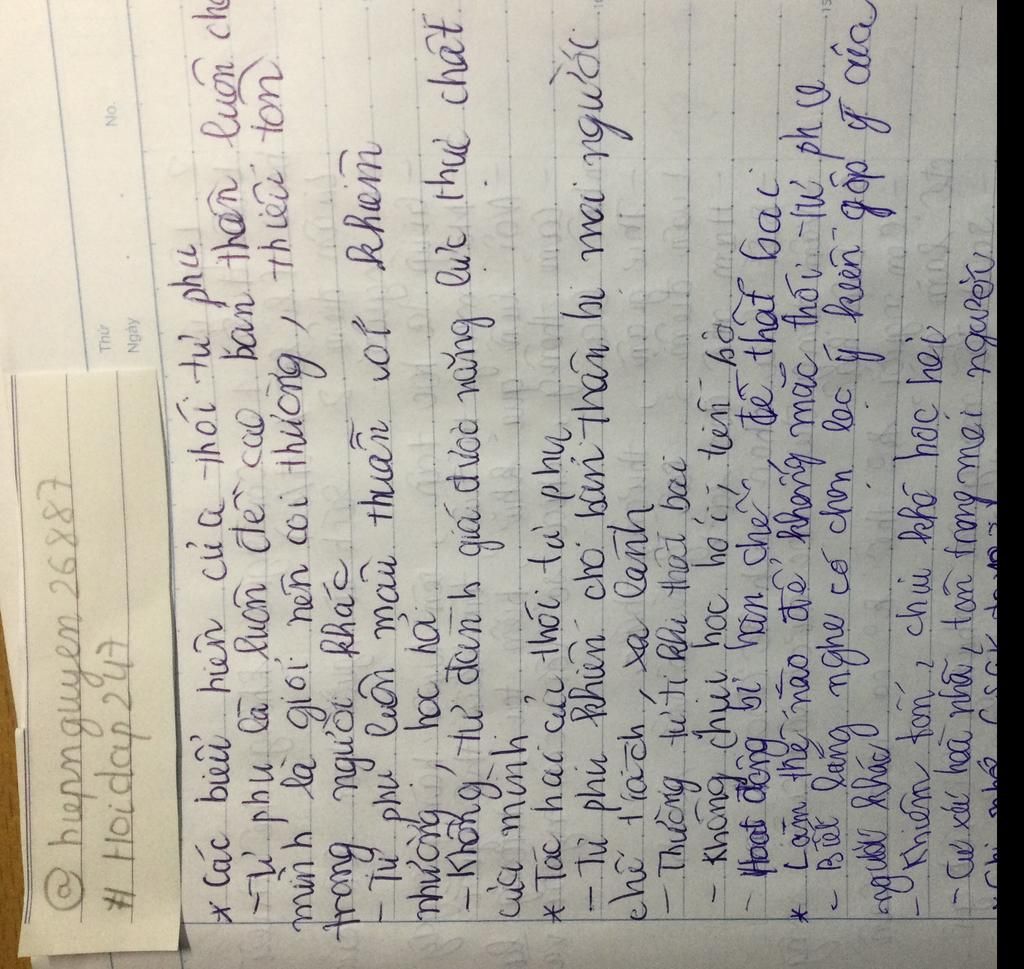 @ hiepnguyen26887
# Hoidap247
Thứ
Ngày
No.
* Các biểu hiện của thói tự phụ
- Tự phụ là luôn đề cao bản thân luôn cho
mình là giỏi nên coi thường, thiếu tôn
trọng người khác
- Tự phụ luôn mâu thuẫn với khiêm
nhường, học hỏi
- Không tự đánh giá được năng lực thực chất
của mình
* Tác hại của thói tự phụ
- Tự phụ khiến cho bản thân bị mọi người
chê trách, xa lánh
- Thường tự ti khi thất bại
- Không chịu học hỏi, tiến bộ
- Hoạt động bị hạn chế, dễ thất bại
* Làm thế nào để không mắc thói tự phụ
- Biết lắng nghe có chọn lọc ý kiến góp ý của
người khác
- Khiêm tốn, chịu khó học hỏi
- Cư xử hoà nhã, tôn trọng mọi người